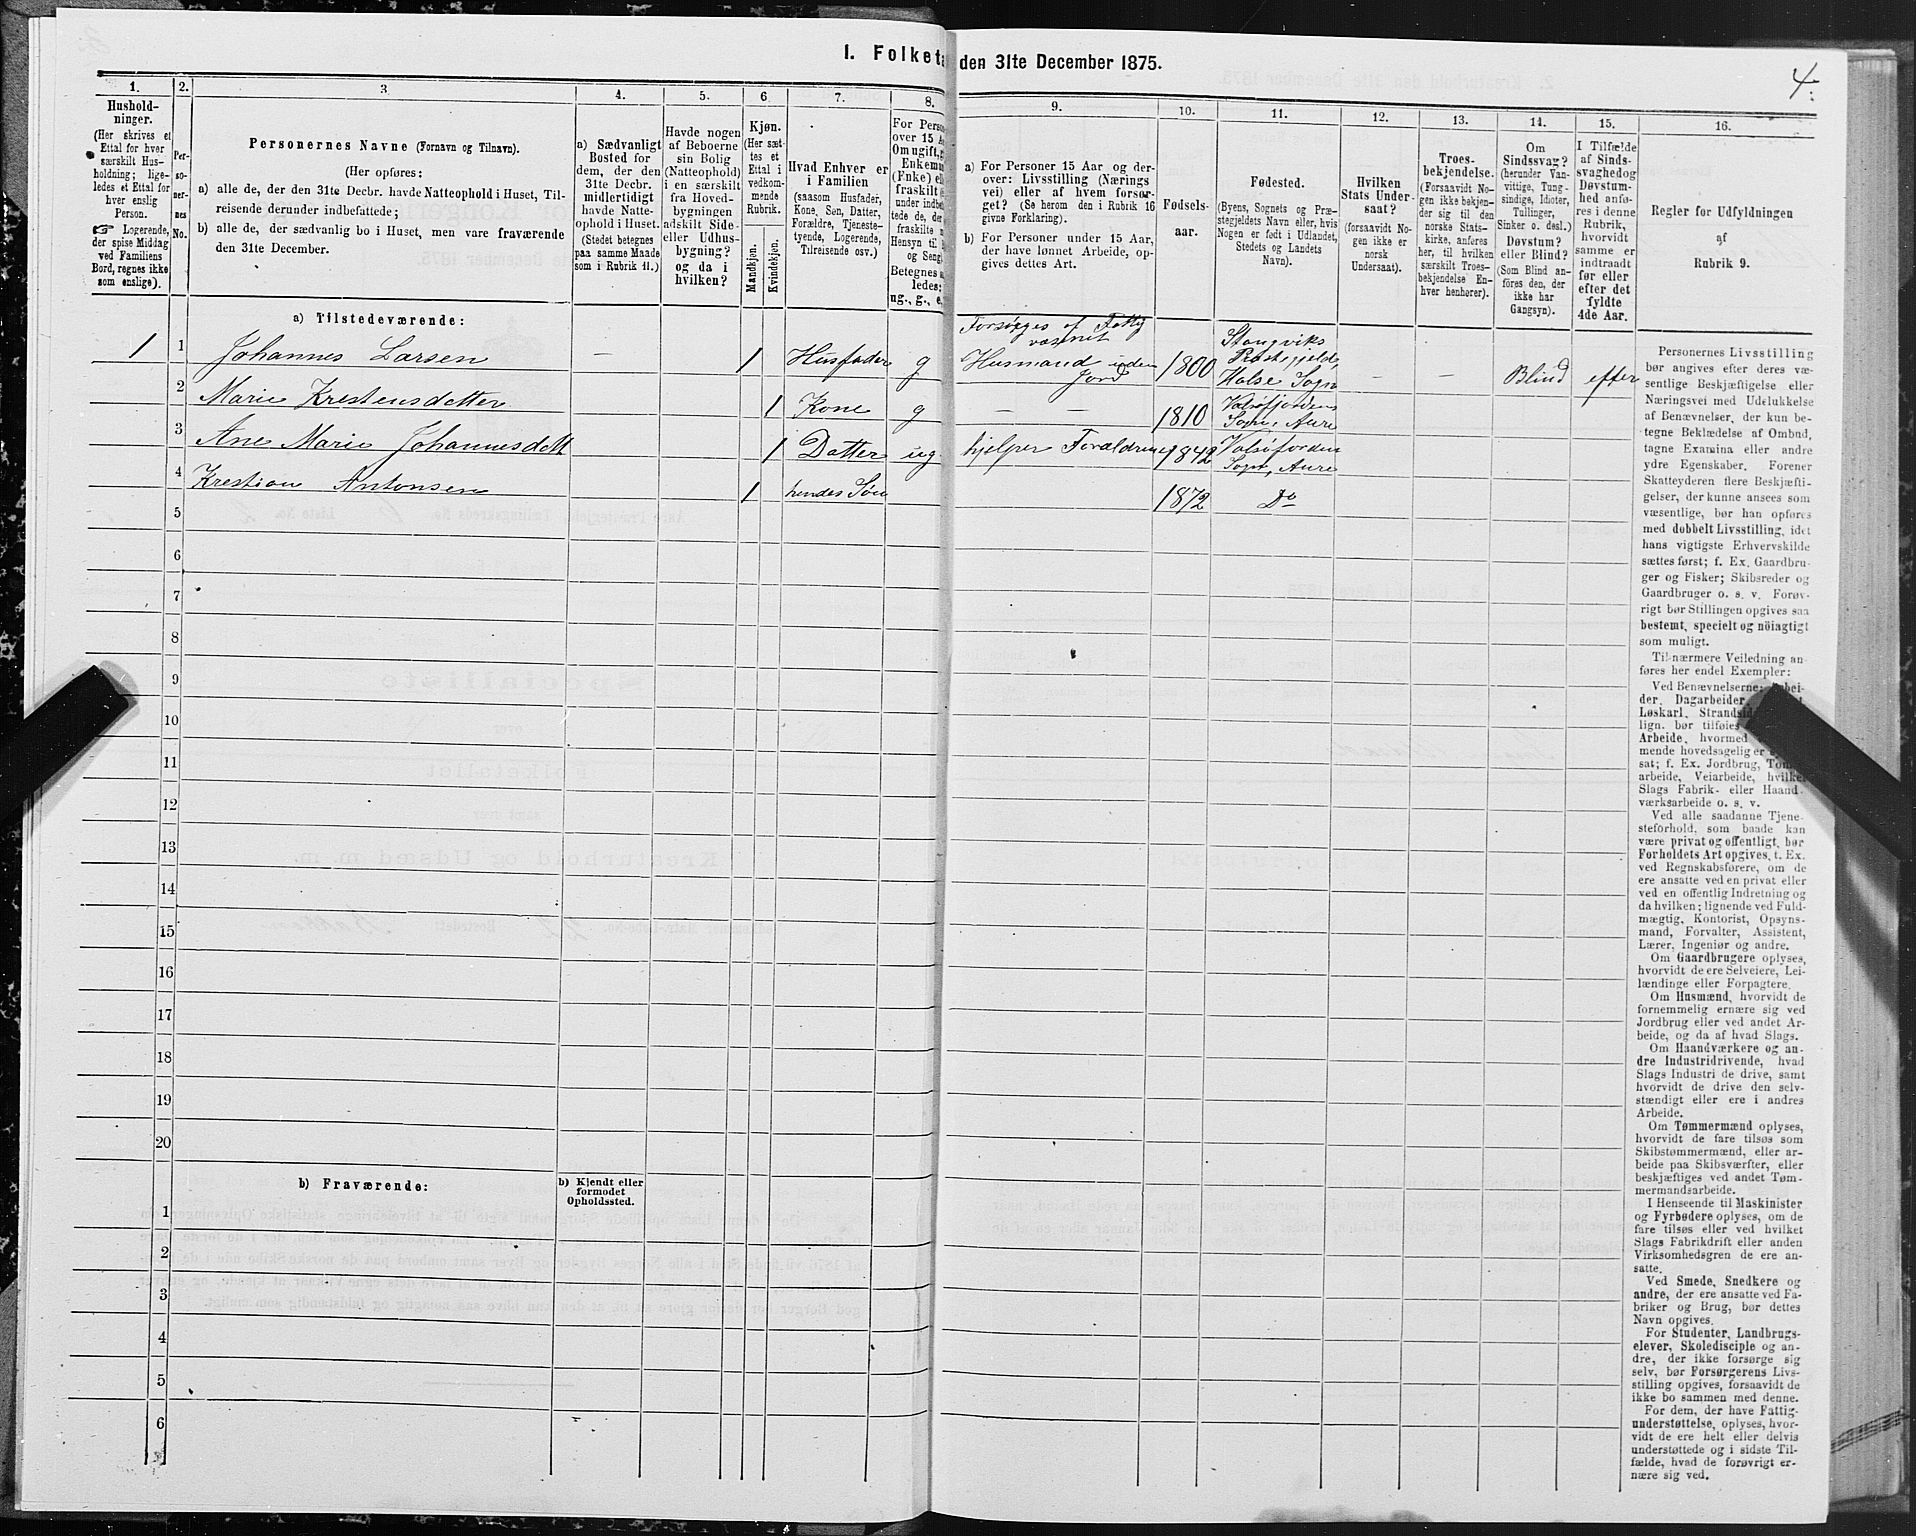 I. Folketa den 31te December 1875.
4.
1. 2. 3 4. 5. 6 7. 8. 9. 10. 11. 12. 13. 14. 15. 16.
Hushold-
ninger.
(Her skrives et
Ettal for hver
særskilt Hus-
holdning; lige-
ledes et Ettal for
hver enslig
Person.
☞ Logerende,
der spise Middag
ved Familiens
Bord, regnes ikke
som enslige).
Per-
so-
ner-
nes
No.
Personernes Navne (Fornavn og Tilnavn).
(Her opføres:
a) alle de, der den 31te Decbr. havde Natteophold i Huset, Til-
reisende derunder indbefattede;
b) alle de, der sædvanlig bo i Huset, men vare fraværende
den 31te December.
a) Sædvanligt
Bosted for
dem, der den
31te Decbr.
midlertidigt
havde Natte-
ophold i Huset.
(Stedet betegnes
paa samme Maade
som i Rubrik 11.)
Havde nogen
af Beboerne
sin Bolig
(Natteophold)
i en særskilt
fra Hoved-
bygningen
adskilt Side-
eller Udhus-
bygning?
og da i
hvilken?
Kjøn.
(Her sæt-
tes et
Ettal i
vedkom-
mende
Rubrik.
Mandkjøn.
Kvindekjøn.
Hvad Enhver er
i Familien
(saasom Husfader,
Kone, Søn, Datter,
Forældre, Tjeneste-
tyende, Logerende,
Tilreisende osv.)
For Perso
over 15 A
Om ugift, g
Enkema
(Enke) e
fraskilt
under indbe
tede de, de
fraskilte
Hensyn til
og Seng
Betegnes
ledes:
ug., g., e,
a) For Personer 15 Aar og der-
over: Livsstilling (Nærings
vei) eller af hvem forsør-
get? (Se herom den i Rubrik 16
givne Forklaring).
b) For Personer under 15 Aar,
der have lønnet Arbeide, op-
gives dettes Art.
Fødsels-
aar.
Fødested.
(Byens, Sognets og Præ-
stegjeldets Navn eller, hvis
Nogen er født i Udlandet,
Stedets og Landets
Navn).
Hvilken
Stats Under-
saat?
(forsaavidt No-
gen ikke er
norsk
Undersaat).
Troes-
bekjendelse.
(Forsaavidt No-
gen ikke bekjen-
der sig til den
norske Stats-
kirke, anføres
her, til hvilken
særskilt Troes-
bekjendelse En-
hver henhører).
Om
Sindssvag?
(herunder Van-
vittige, Tung-
sindige, Idioter,
Tullinger,
Sinker o. desl.)
Døvstum?
eller Blind?
(Som Blind an-
føres den, der
ikke har
Gangsyn).
I Tilfælde
af Sinds-
svaghedog
Døvstum-
hed anfø-
res i denne
Rubrik,
hvorvidt
samme er
indtraadt
før eller
efter det
fyldte
4de Aar.
Regler for Udfyldningen
af
Rubrik 9.
a) Tilstedeværende:
1 1 Johannes Larsen — 1 Husfader g Forsørges af Fattigvæsnet Husmand uden Jord 1800 Stangviks Præstegjeld, Halse Sogn — — Blind efter
2 Marie Krestensdatter 1 Kone g — — 1810 Valsøfjordens Sogn, Aure
3 Ane Marie Johannesdatt 1 Datter ug hjelper Forældrene 1842 Valsøfjorden Sogn, Aure
4 Krestian Antonsen 1 hendes Søn 1872 Do
5
6
7
8
9
10
11
12
13
14
15
16
17
18
19
20
b) Fraværende:
b) Kjendt eller
formodet
Opholdssted.
1
2
3
4
5
6
Personernes Livsstilling
bør angives efter deres væ-
sentlige Beskjæftigelse eller
Næringsvei med Udelukkelse
af Benævnelser, der kun be-
tegne Beklædelse af Ombud,
tagne Examina eller andre
ydre Egenskaber. Forener
Skatteyderen flere Beskjæfti-
gelser, der kunne ansees som
væsentlige, bør han opføres
med dobbelt Livsstilling, idet
hans vigtigste Erhvervskilde
sættes først; f. Ex. Gaardbru-
ger og Fisker; Skibsreder og
Gaardbruger o. s. v. Forøv-
rigt bør Stillingen opgives saa
bestemt, specielt og nöiagtigt
som muligt.
Til nærmere Veiledning an-
føres her endel Exempler:
Ved Benævnelserne: bei-
der, Dagarbeider,
Løskarl, Strandsid
lign. bør tilføies
Arbeide, hvormed
mende hovedsagelig er
sat; f. Ex. Jordbrug, Tøm
arbeide, Veiarbeide, hvilke
Slags Fabrik- eller Haand-
værksarbeide o. s. v.
Ved alle saadanne Tjene-
steforhold, som baade kan
være privat og offentligt, bør
Forholdets Art opgives, t. Ex.
ved Regnskabsførere, om de
ere ansatte ved en privat eller
ved en offentlig Indretning og
da hvilken; lignende ved Fuld-
mægtig, Kontorist, Opsyns-
mand, Forvalter, Assistent,
Lærer, Ingeniør og andre.
Om Gaardbrugere oplyses,
hvorvidt de ere Selveiere, Lei-
lændinge eller Forpagtere.
Om Husmænd, hvorvidt de
fornemmelig ernære sig ved
Jordbrug eller ved andet Ar-
beide, og da af hvad Slags.
Om Haandværkere og an-
dre Industridrivende, hvad
Slags Industri de drive, samt
hvorvidt de drive den selv-
stændigt eller ere i andres
Arbeide.
Om Tømmermænd oplyses,
hvorvidt de fare tilsøs som
Skibstømmermænd, eller ar-
beide paa Skibsværfter, eller
beskjæftiges ved andet Tøm-
mermandsarbeide.
I Henseende til Maskinister
og Fyrbødere oplyses, om de
fare tilsøs eller ved hvilket
Slags Fabrikdrift eller anden
Virksomhedsgren de ere an-
satte.
Ved Smede, Snedkere og
andre, der ere ansatte ved Fa-
briker og Brug, bør dettes
Navn opgives.
For Studenter, Landbrugs-
elever, Skoledisciple og an-
dre, der ikke forsørge sig
selv, bør Forsørgerens Livs-
stilling opgives, forsaavidt de
ikke bo sammen med denne.
For dem, der have Fattig-
understøttelse, oplyses, hvor-
vidt de ere helt eller delvis
understøttede og i sidste Til-
fælde, hvad de forøvrigt er-
nære sig ved.